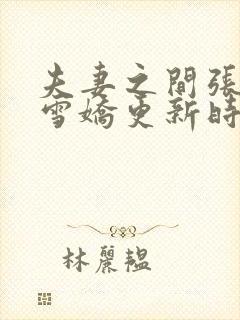 夫妻之間張
雪嬌更新時
林麗韞